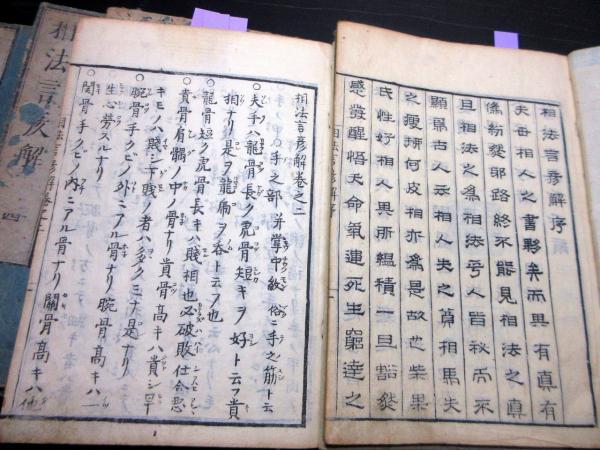 相法言彥解序
夫吾相人之書夥矣而具有真有
偽紛縱邪路終不能見相法之真
且相法之為相法乎人皆秘而不
顕焉古人云相人失之貧相馬失
之瘦抑何皮相亦為是故也柴果
氏性好相人異所蘊積一旦豁然
感發醒悟天命氣運死生窮達之
相法言彥解序
相法言彥解巻之二
○手之部并掌中紋俗ニ手之筋ト云
○夫手ハ龍骨長ク虎骨短キヲ好ト云フ貴
相ナリ是ヲ龍虎ヲ呑ト云フ也
○龍骨短ク虎骨長キハ賤相也必破敗仕合悪
○貴骨肩髃ノ中ノ骨ナリ貴骨高キハ貴シ卑
キモノハ賤シ下賤ノ者ハ多クミナ是ナリ
○腕骨手クビノ外ニアル骨ナリ腕骨高キハ一
生心労スルナリ
○関骨手クビノ内ニアル骨ナリ關骨高キハ他
相法言彥解巻之二
相法言彦解 四